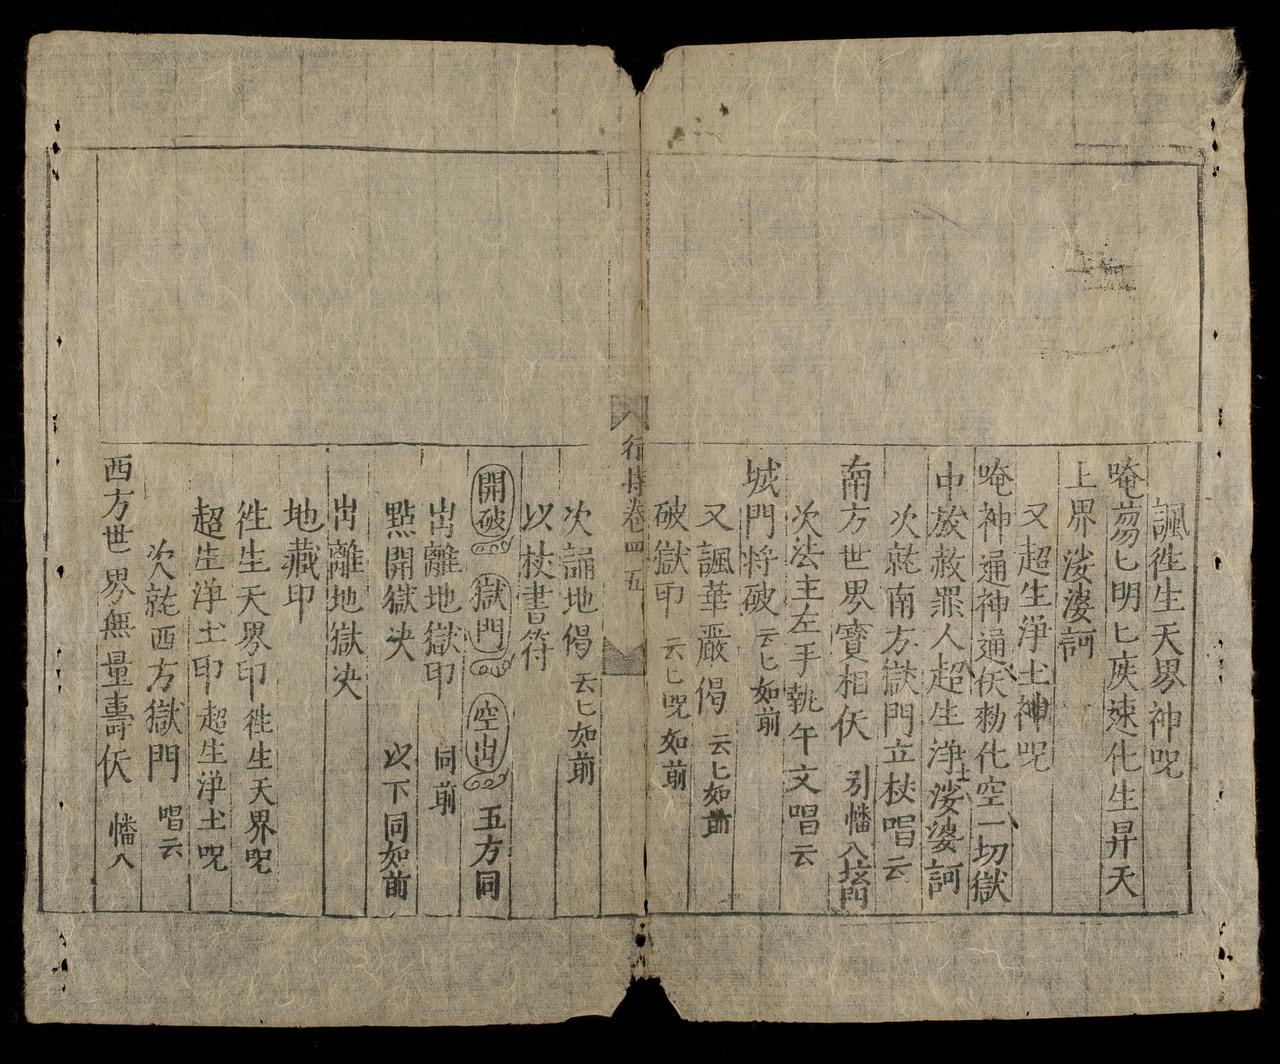 諷徃生天界神呪
唵芴匕明匕疾速化生昇天
上界淁婆訶
又超生淨土神呪
唵神通神通仸勑化空一切獄
中放赦罪人超生淨土淁婆訶
次就南方獄門立杖唱云
南方世界寶相仸 引幡入
次法主左手執午文唱云
城門将破 云匕如前
又諷華嚴偈 云匕如前
破獄印 云匕呪如前
行持卷四 五
次誦地偈 云匕如前
以杖書符
開破 獄門 空出 五方同
出離地獄印 同前
點開獄决 以下同如前
出離地獄决
地藏印
徃生天界印 徃生天界呪
超生淨土印 超生淨土呪
次就西方獄門 唱云
西方世界無量壽仸 幡入